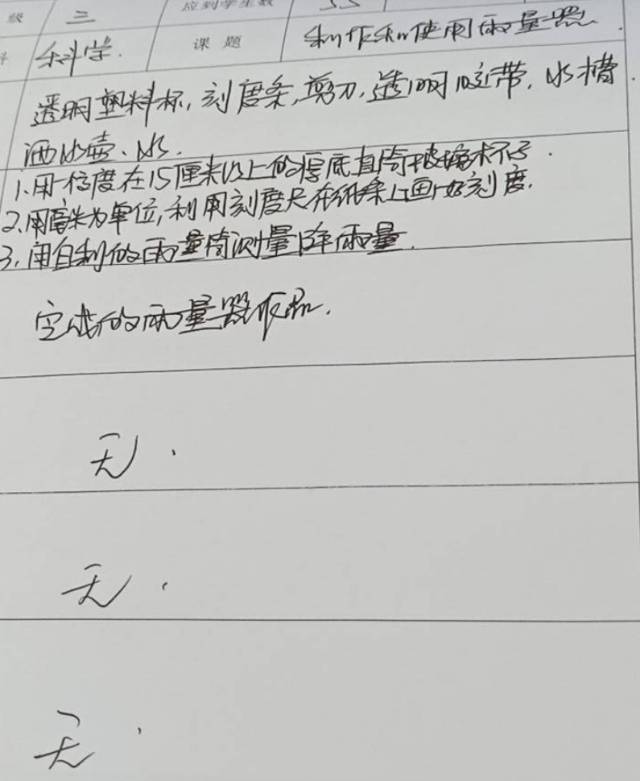 级 三 应到学生数 55
科 科学. 课题 制作和使用雨量器.
透明塑料杯, 刻度条, 剪刀, 透明胶带, 水槽
洒水壶、水.
1. 用一高度在15厘米以上的厚底直筒玻璃杯
2. 用毫米为单位, 利用刻度尺在纸条上画好刻度.
3. 用自制的雨量筒测量降雨量.
完成的雨量器
无.
无.
无.